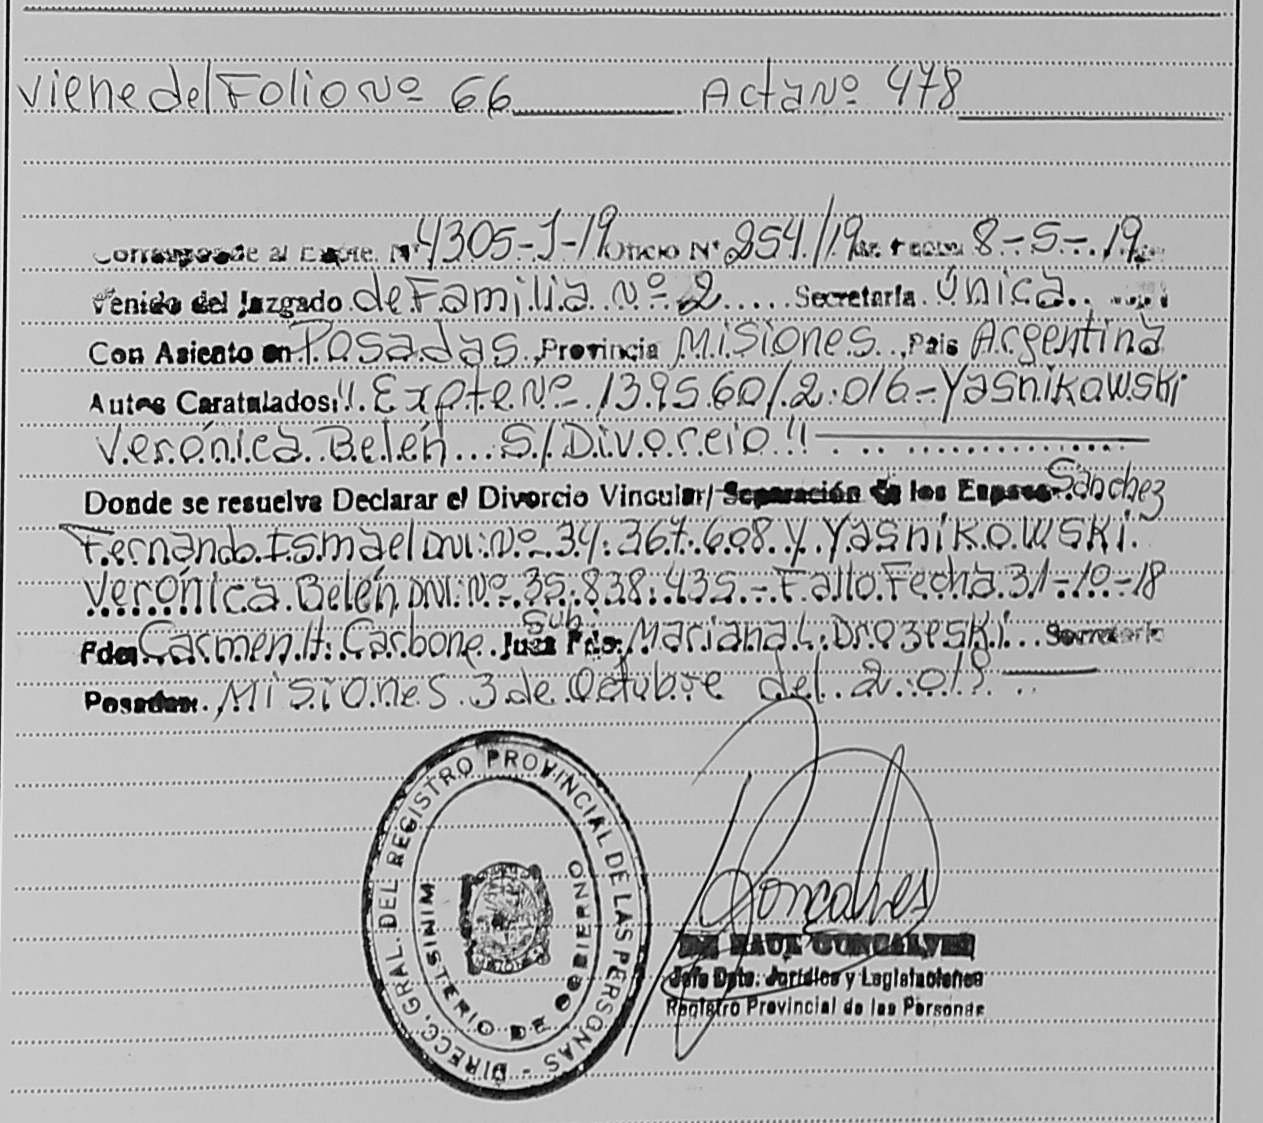 Viene del Folio Nº 66 Acta Nº 478
Corresponde al Expte. Nº 4305-J-19 Oficio Nº 254/19 de Fecha 8-5-19
Venido del Juzgado de Familia Nº 2 Secretaría Única
Con Asiento en Posadas, Provincia Misiones, Pais Argentina
Autos Caratulados: "Expte Nº 139560/2016-Yasnikowski
Verónica Belén S/Divorcio"
Donde se resuelve Declarar el Divorcio Vincular/ Separación de los Esposos Sánchez
Fernando Ismael DNI: Nº 34.367.608 y Yasnikowski
Verónica Belén DNI: Nº 35.838.435.- Fallo Fecha 31-10-18
Sub.
Fdo: Carmen H. Carbone Juez Fdo: Mariana L. Drozeski Secretaria
Posadas. Misiones 3 de Octubre del
DIRECC. GRAL. DEL REGISTRO PROVINCIAL DE LAS PERSONAS -
MINISTERIO DE GOBIERNO
Goncalves
DR. RAUL GONCALVES
Jefe Dpto. Jurídico y Legislaciones
Registro Provincial de las Personas